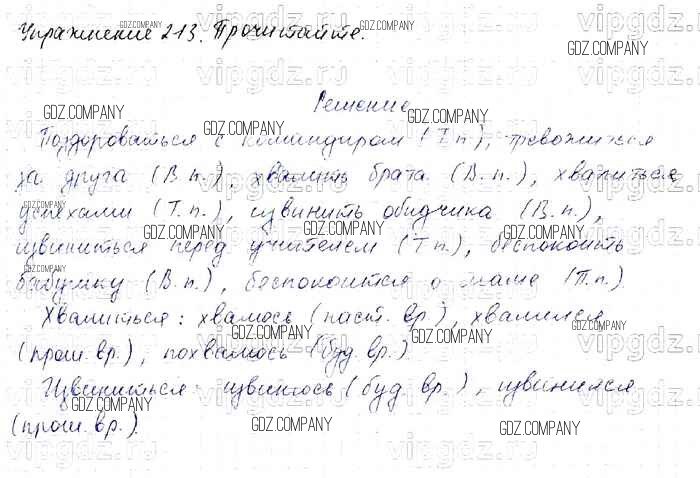 Упражнение 213. Прочитайте.
Решение
Поздороваться с командиром (Т.п.), тревожиться
за друга (В.п.), хвалить брата (В.п.), хвалиться
успехами (Т.п.), извинить обидчика (В.п.),
извиниться перед учителем (Т.п.), беспокоить
бабушку (В.п.), беспокоится о маме (П.п.).
Хвалиться: хвалюсь (наст. вр.), хвалился
(прош. вр.), похвалюсь (буд. вр.)
Извиниться: извинюсь (буд. вр.), извинился
(прош. вр.).
GDZ.COMPANY
vipgdz.ru